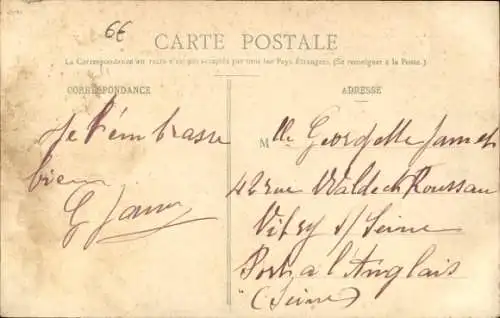 6€
CARTE POSTALE
La Correspondance au recto n'est pas acceptée par tous les Pays Étrangers. (Se renseigner à la Poste.)
CORRESPONDANCE
ADRESSE
Je t'embrasse
bien
G Jamet
Mlle Georgette Jamet
42 rue Waldeck Rousseau
Vitry s/ Seine
Port à l'Anglais
(Seine)